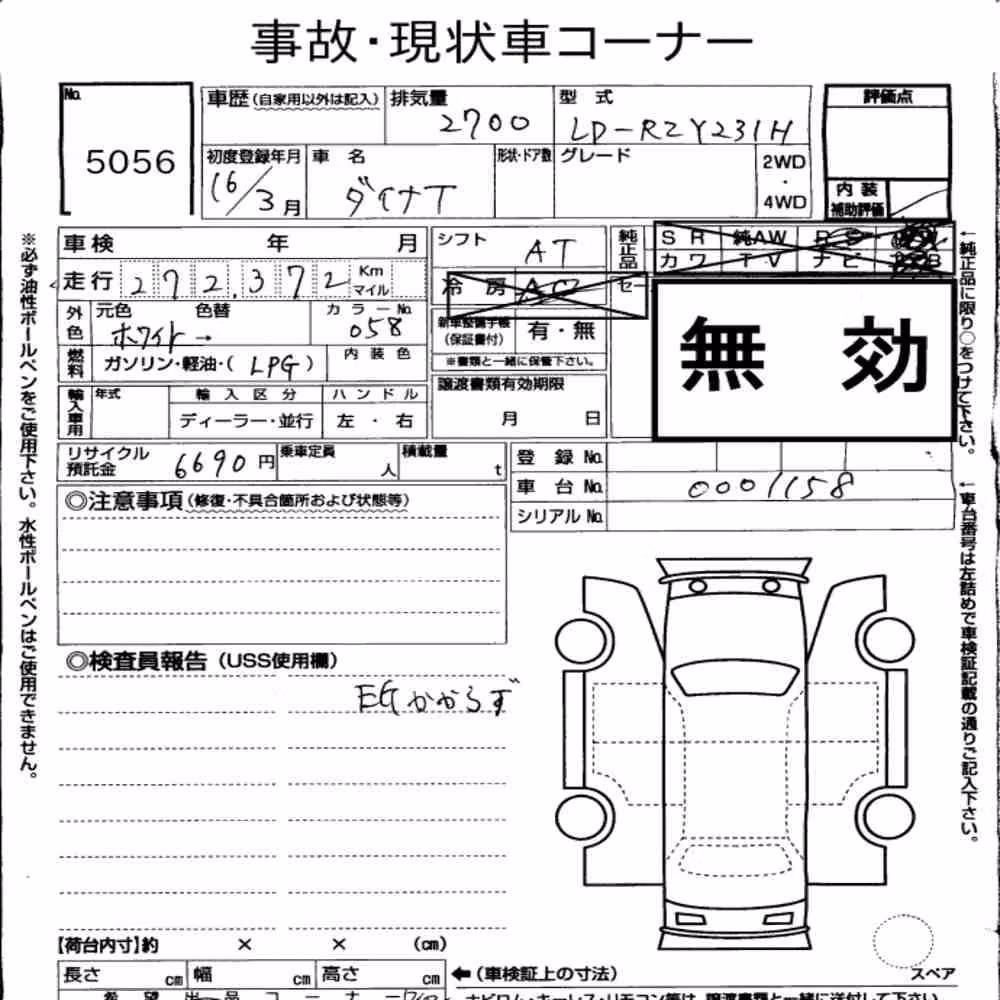 事故・現状車コーナー
No. 5056
車歴 (自家用以外は記入) 排気量 2700 型式 LD-RZY231H
評価点
初度登録年月 16/3月 車名 ダイナT 形状・ドア数 グレード 2WD・4WD
内装補助評価
車検 年 月 シフト AT 純正品 SR 純AW PS
カワ TV ナビ
走行 272,372 Km マイル 冷房 AC セー
外色 元色 ホワイト → 色替 カラーNo. 058
新車整備手帳(保証書付) 有・無
※書類と一緒に保管下さい。
無効
燃料 ガソリン・軽油・( LPG ) 内装色
譲渡書類有効期限
月 日
輸入車用 年式 輸入区分 ハンドル
ディーラー・並行 左・右
リサイクル預託金 6690円 乗車定員 人 積載量 t
登録No.
車台No. 0001158
シリアルNo.
◎注意事項(修復・不具合箇所および状態等)
◎検査員報告(USS使用欄)
EGかからず
【荷台内寸】約 × × (cm)
長さ cm 幅 cm 高さ cm ←(車検証上の寸法)
スペア
希望出品コーナー
ナビロム・キーレス・リモコン等は、譲渡書類と一緒に送付して下さい。
※必ず油性ボールペンをご使用下さい。水性ボールペンはご使用できません。
←純正品に限り○をつけて下さい。
←車台番号は左詰めで車検証記載の通りご記入下さい。